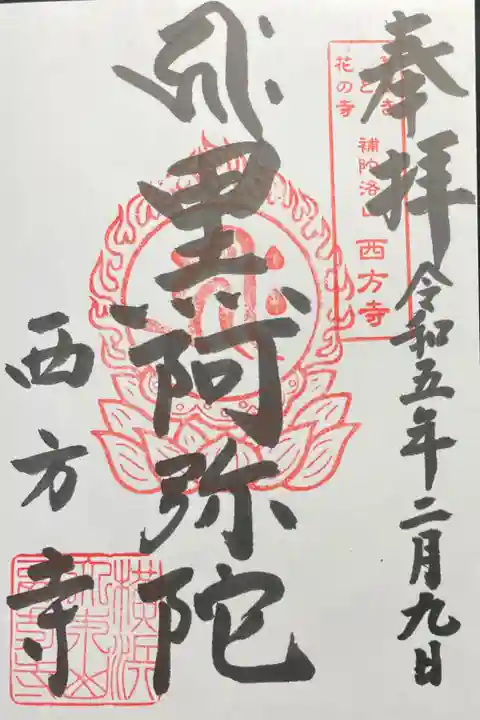 奉拝
令和五年二月九日
花の寺
補陀洛山
西方寺
黒阿弥陀
西方寺
横浜